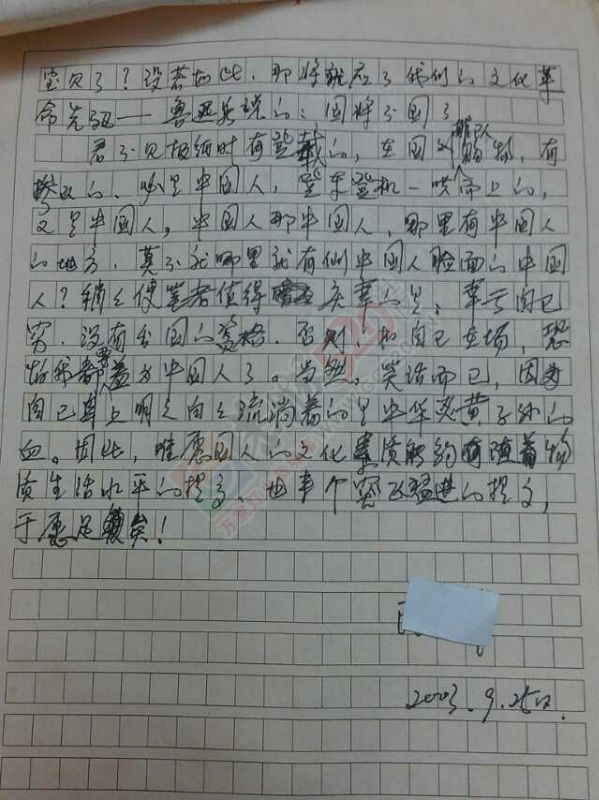 宝贝了？设若如此，那将就应了我们的文化革
命先驱——鲁迅先生说的：国将不国了
君不见报纸时有登载的，在国外排队购物，有
的，必是中国人，登车登机一哄而上的，
又是中国人，中国人那中国人，哪里有中国人
的地方，莫不就哪里就有似中国人脸面的中国
人？稍之使笔者值得庆幸的是，幸亏自己
穷，没有出国的资格，否则，如自己在场，恐
怕我都要羞为中国人了。当然，笑话而已，因为
自己身上明明白白流淌着的是中华炎黄子孙的
血。因此，唯愿国人的文化素质能够随着物
质生活水平的提高，也来个突飞猛进的提高，
于愿足矣！
2003.9.25日.